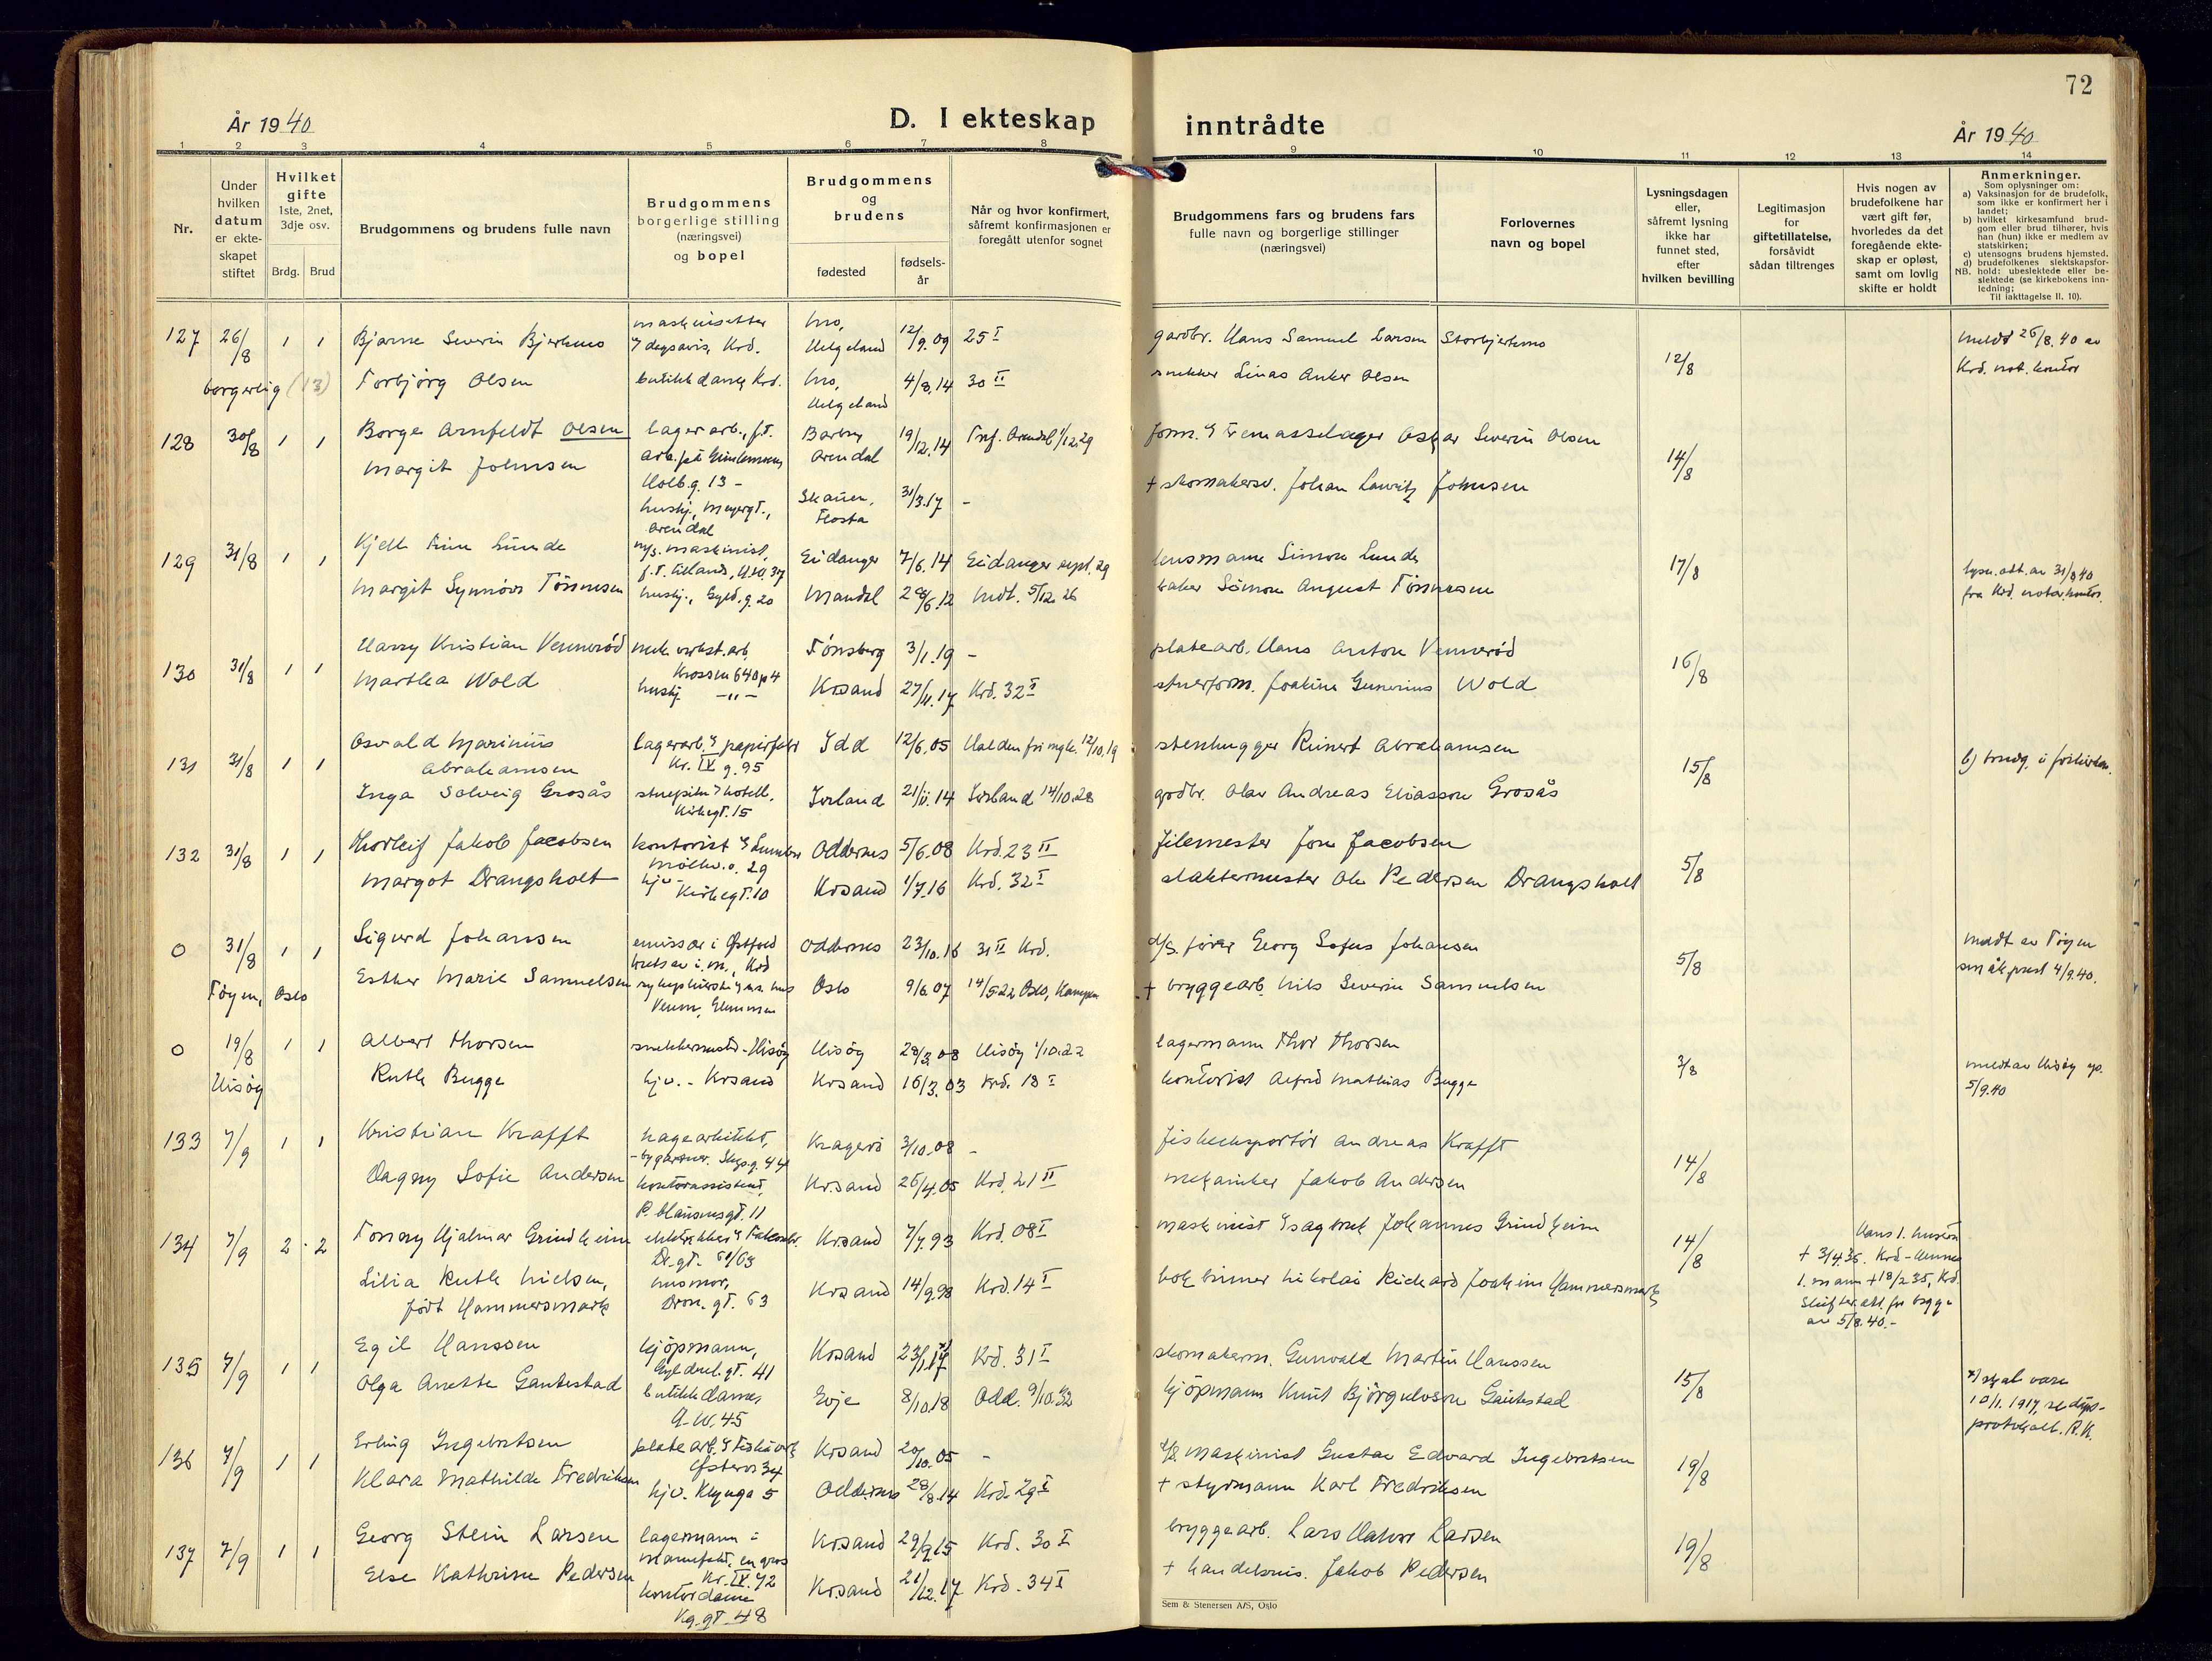 72
År 1940
D. I ekteskap inntrådte
År 1940
1 2 3 4 5 6 7 8 9 10 11 12 13 14
Nr.
Under hvilken datum er ekte-skapet stiftet
Hvilket gifte 1ste, 2net, 3dje osv.
Brdg. Brud
Brudgommens og brudens fulle navn
Brudgommens borgerlige stilling (næringsvei) og bopel
Brudgommens og brudens
fødested
fødsels-år
Når og hvor konfirmert, såfremt konfirmasjonen er foregått utenfor sognet
Brudgommens fars og brudens fars fulle navn og borgerlige stillinger (næringsvei)
Forlovernes navn og bopel
Lysningsdagen eller, såfremt lysning ikke har funnet sted, efter hvilken bevilling
Legitimasjon for giftetillatelse, forsåvidt sådan tiltrenges
Hvis nogen av brudefolkene har vært gift før, hvorledes da det foregående ekte-skap er opløst, samt om lovlig skifte er holdt
Anmerkninger.
Som oplysninger om:
a) Vaksinasjon for de brudefolk, som ikke er konfirmert her i landet;
b) hvilket kirkesamfund brud-gom eller brud tilhører, hvis han (hun) ikke er medlem av statskirken;
c) utensogns brudens hjemsted.
d) brudefolkenes slektskapsfor-hold: ubeslektede eller be-slektede (se kirkebokens inn-ledning;
NB. Til iakttagelse II. 10).
127 26/8 1 1 Bjarne Severin Bjerkmo maskinsetter Mo, Helgeland 12/9.09 25 I gardbr. Hans Samuel Larsen Storbjerkmo 12/8 meldt 26/8.40 av
dagsavis, Krd. Krd. not. kontor
borgerlig (13) Torbjørg Olsen butikkdame, Krd. Mo, Helgeland 4/8.14 30 II snekker Linas Anker Olsen
128 30/8 1 1 Borge Arnfeldt Olsen lagerarb., f.t. Barbu Arendal 19/12.14 Tref. Arendal 1/12.29 form. Oskar Severin Olsen 14/8
Holbg. 13 -
Margit Johnsen Flosta 31/3.17 - + skomakersv. Johan Lauritz Johnsen
hushj., Arendal
129 31/8 1 1 Kjell Finn Lunde maskinist, Eidanger 7/6.14 Eidanger sept. 29 lensmann Simon Lunde 17/8 lysn. att. av 31/8 40
Margit Synnöve Tönnesen hushj., Gyld.g. 20 Mandal 28/6.12 Mdl. 5/12.26 baker Simon August Tönnesen fra Krd. notar. kontor.
130 31/8 1 1 Harry Kristian Vennerød mek. verkst. arb. Tönsberg 3/1.19 - platearb. Hans Anton Vennerød 16/8
Krossen 640 p4
Martha Wold hushj. -"- Krsand 27/11.17 Krd. 32 I stuerform. Joakim Gunerius Wold
131 31/8 1 1 Osvald Marinius Abrahamsen lagerarb. papirfabr. Idd 12/6.05 Halden frimgh. 12/10.19 stenhugger Reinert Abrahamsen 15/8
Kr. IV g. 95
Inga Solveig Grosås stuepike hotell, Iveland 21/11.14 Iveland 14/10.28 gardbr. Olav Andreas Eliassen Grosås
Kirkegt. 15
132 31/8 1 1 Thorleif Jakob Jacobsen kontorist Oddernes 5/6.08 Krd. 23 II filemester Jon Jacobsen 5/8
Margot Drangsholt hjv. Kirkegt. 10 Krsand 1/7.16 Krd. 32 I slaktermester Ole Pedersen Drangsholt
0 31/8 1 1 Sigurd Johansen emissær i Østfold Oddernes 23/10.16 31 II Krd. d/s. fører Georg Sofus Johansen 5/8 meldt av Töyen
krets av i.m., Krd
Töyen, Oslo Esther Marie Samuelsen Oslo 9/6.07 14/5.22 Oslo, Kampen + bryggearb. Nils Severin Samuelsen småkprest 4/9.40.
0 19/8 1 1 Albert Thorsen snekkermester - Hisöy Hisöy 28/3.08 Hisöy 1/10.22 lagermann Thor Thorsen 3/8 meldt av Hisöy sp.
Hisöy Ruth Bugge hjv. - Krsand Krsand 16/3.03 Krd. 18 I kontorist Alfred Mathias Bugge 5/9.40
133 7/9 1 1 Kristian Krafft hagearkitekt, Kragerö 3/10.08 - fiskeeksportör Andreas Krafft 14/8
Dagny Sofie Andersen kontorassistent, Krsand 26/4.05 Krd. 21 II mekaniker Jakob Andersen
134 7/9 2 - 2 Tommy Hjalmar Grindheim Dr.gt. 61/63 Krsand 7/7.93 Krd. 08 I maskinist sagbruk Johannes Grindheim 14/8 Hans 1. hustru
+ 3/4.36. Krd -
Lilia Ruth Nielsen, født Hammersmark husmor, Dron. gt. 63 Krsand 14/9.98 Krd. 14 I bokbinner Nikolai Rickard Joakim Hammersmark 1. mann + 18/2 35, Krd.
Skifteratt. for begge
av 5/8.40.-
135 7/9 1 1 Egil Hanssen kjöpmann, Gyldenl.gt. 41 Krsand 23/1.17 Krd. 31 I skomakerm. Gunvald Martin Hanssen 15/8 x) skal være
Olga Anette Gautestad butikkdame, Q.-W. 45 Evje 8/10.18 Odd. 9/10.32 kjöpmann Knut Björgulvson Gautestad 10/1. 1917, se dåps-
protokoll. R.K.
136 7/9 1 1 Erling Ingebretsen platearb. Krsand 20/10.05 - maskinist Gustav Edvard Ingebretsen 19/8
Østerv 34
Klara Mathilde Fredriksen hjv. Klynga 5 Oddernes 28/8.14 Krd. 29 I + styrmann Karl Fredriksen
137 7/9 1 1 Georg Stein Larsen lagermann i Krsand 29/9.15 Krd. 30 I bryggearb. Lars Larsen 19/8
manufakt. en gros
Kr. IV. 72
Else Kathrine Pedersen kontordame Krsand 21/12.17 Krd. 34 I + handelsreis. Jakob Pedersen
Kg. gt. 48
Sem & Stenersen A/S, Oslo